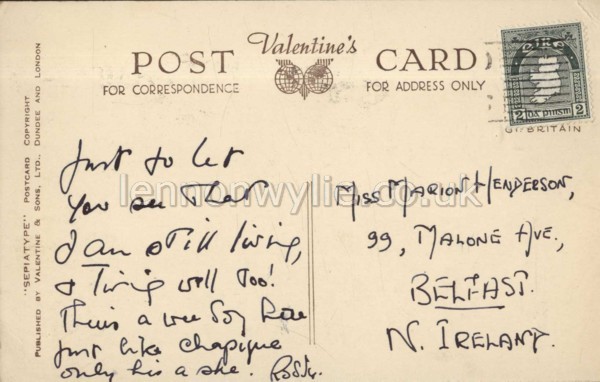 POST Valentine's CARD
FOR CORRESPONDENCE FOR ADDRESS ONLY
"SEPIATYPE" POSTCARD COPYRIGHT
PUBLISHED BY VALENTINE & SONS, LTD., DUNDEE AND LONDON
éire
2 2
BRITAIN
Just to let
you see that
I am still living,
& living well too!
There's a wee boy here
just like chapique
only his a she. 
MISS MARION HENDERSON,
99, MALONE AVE.,
BELFAST.
N. IRELAND.
lennonwylie.co.uk